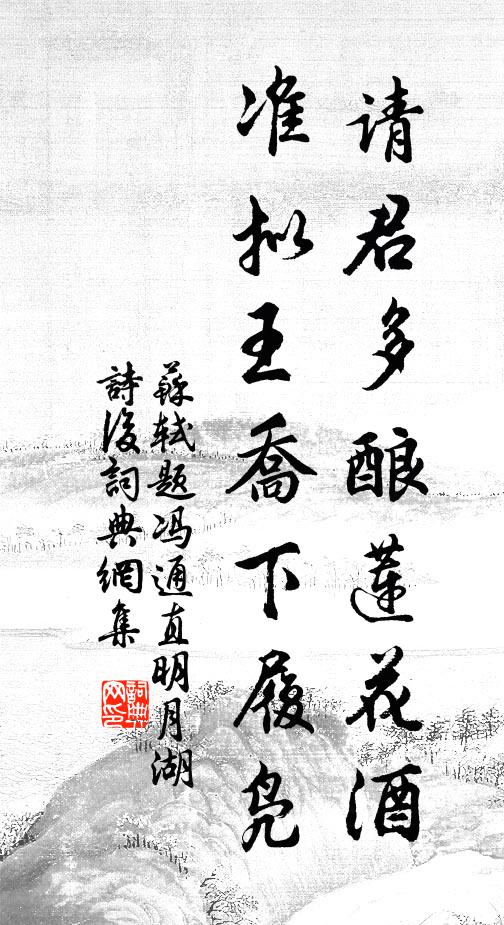 请君多酿莲花酒
准拟王乔下履凫
苏轼题冯通直明月湖
詩后詞典網集
詞典网印